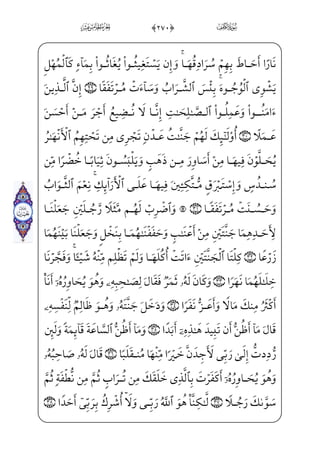 ﴿٢٧٠﴾
نَارًا أَحَاطَ بِهِمْ سُرَادِقُهَا ۚ وَإِن يَسْتَغِيثُوا۟ يُغَاثُوا۟ بِمَآءٍ كَٱلْمُهْلِ
يَشْوِى ٱلْوُجُوهَ ۚ بِئْسَ ٱلشَّرَابُ وَسَآءَتْ مُرْتَفَقًا ﴿٢٩﴾ إِنَّ ٱلَّذِينَ
ءَامَنُوا۟ وَعَمِلُوا۟ ٱلصَّـٰلِحَـٰتِ إِنَّا لَا نُضِيعُ أَجْرَ مَنْ أَحْسَنَ
عَمَلًا ﴿٣٠﴾ أُو۟لَـٰٓئِكَ لَهُمْ جَنَّـٰتُ عَدْنٍ تَجْرِى مِن تَحْتِهِمُ ٱلْأَنْهَـٰرُ
يُحَلَّوْنَ فِيهَا مِنْ أَسَاوِرَ مِن ذَهَبٍ وَيَلْبَسُونَ ثِيَابًا خُضْرًا مِّن
سُندُسٍ وَإِسْتَبْرَقٍ مُّتَّكِـِٔينَ فِيهَا عَلَى ٱلْأَرَآئِكِ ۚ نِعْمَ ٱلثَّوَابُ
وَحَسُنَتْ مُرْتَفَقًا ﴿٣١﴾ ۞ وَٱضْرِبْ لَهُم مَّثَلًا رَّجُلَيْنِ جَعَلْنَا
لِأَحَدِهِمَا جَنَّتَيْنِ مِنْ أَعْنَـٰبٍ وَحَفَفْنَـٰهُمَا بِنَخْلٍ وَجَعَلْنَا بَيْنَهُمَا
زَرْعًا ﴿٣٢﴾ كِلْتَا ٱلْجَنَّتَيْنِ ءَاتَتْ أُكُلَهَا وَلَمْ تَظْلِم مِّنْهُ شَيْـًٔا ۚ وَفَجَّرْنَا
خِلَـٰلَهُمَا نَهَرًا ﴿٣٣﴾ وَكَانَ لَهُۥ ثَمَرٌ فَقَالَ لِصَـٰحِبِهِۦ وَهُوَ يُحَاوِرُهُۥٓ أَنَا۠
أَكْثَرُ مِنكَ مَالًا وَأَعَزُّ نَفَرًا ﴿٣٤﴾ وَدَخَلَ جَنَّتَهُۥ وَهُوَ ظَالِمٌ لِّنَفْسِهِۦ
قَالَ مَآ أَظُنُّ أَن تَبِيدَ هَـٰذِهِۦٓ أَبَدًا ﴿٣٥﴾ وَمَآ أَظُنُّ ٱلسَّاعَةَ قَآئِمَةً وَلَئِن
رُّدِدتُّ إِلَىٰ رَبِّى لَأَجِدَنَّ خَيْرًا مِّنْهَا مُنقَلَبًا ﴿٣٦﴾ قَالَ لَهُۥ صَاحِبُهُۥ
وَهُوَ يُحَاوِرُهُۥٓ أَكَفَرْتَ بِٱلَّذِى خَلَقَكَ مِن تُرَابٍ ثُمَّ مِن نُّطْفَةٍ ثُمَّ
سَوَّىٰكَ رَجُلًا ﴿٣٧﴾ لَّـٰكِنَّا۠ هُوَ ٱللَّهُ رَبِّى وَلَآ أُشْرِكُ بِرَبِّىٓ أَحَدًا ﴿٣٨﴾